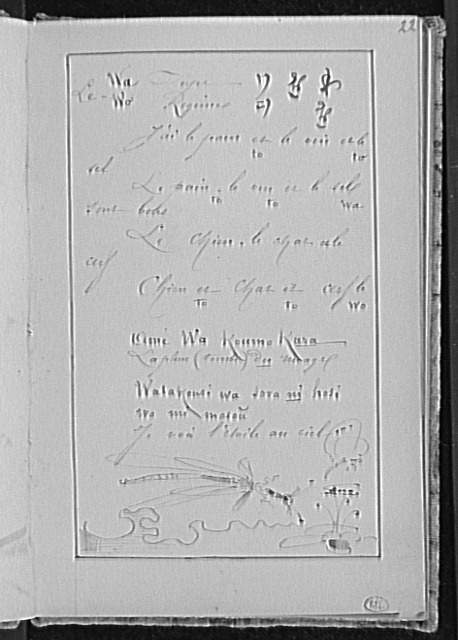 22
Wa Sujet
Le - Wo Régimes
J'ai le pain et le vin et le
to to
sel
Le pain, le vin et le sel
to to wa
sont bons
Le chien, le chat et le
cerf
Chien et Chat et cerf le
To to wo
Amé Wa Koumo Kara
La pluie (tombe) des nuages
Watakousi wa sora ni hosi
wo mi masou
Je vois l'étoile au ciel